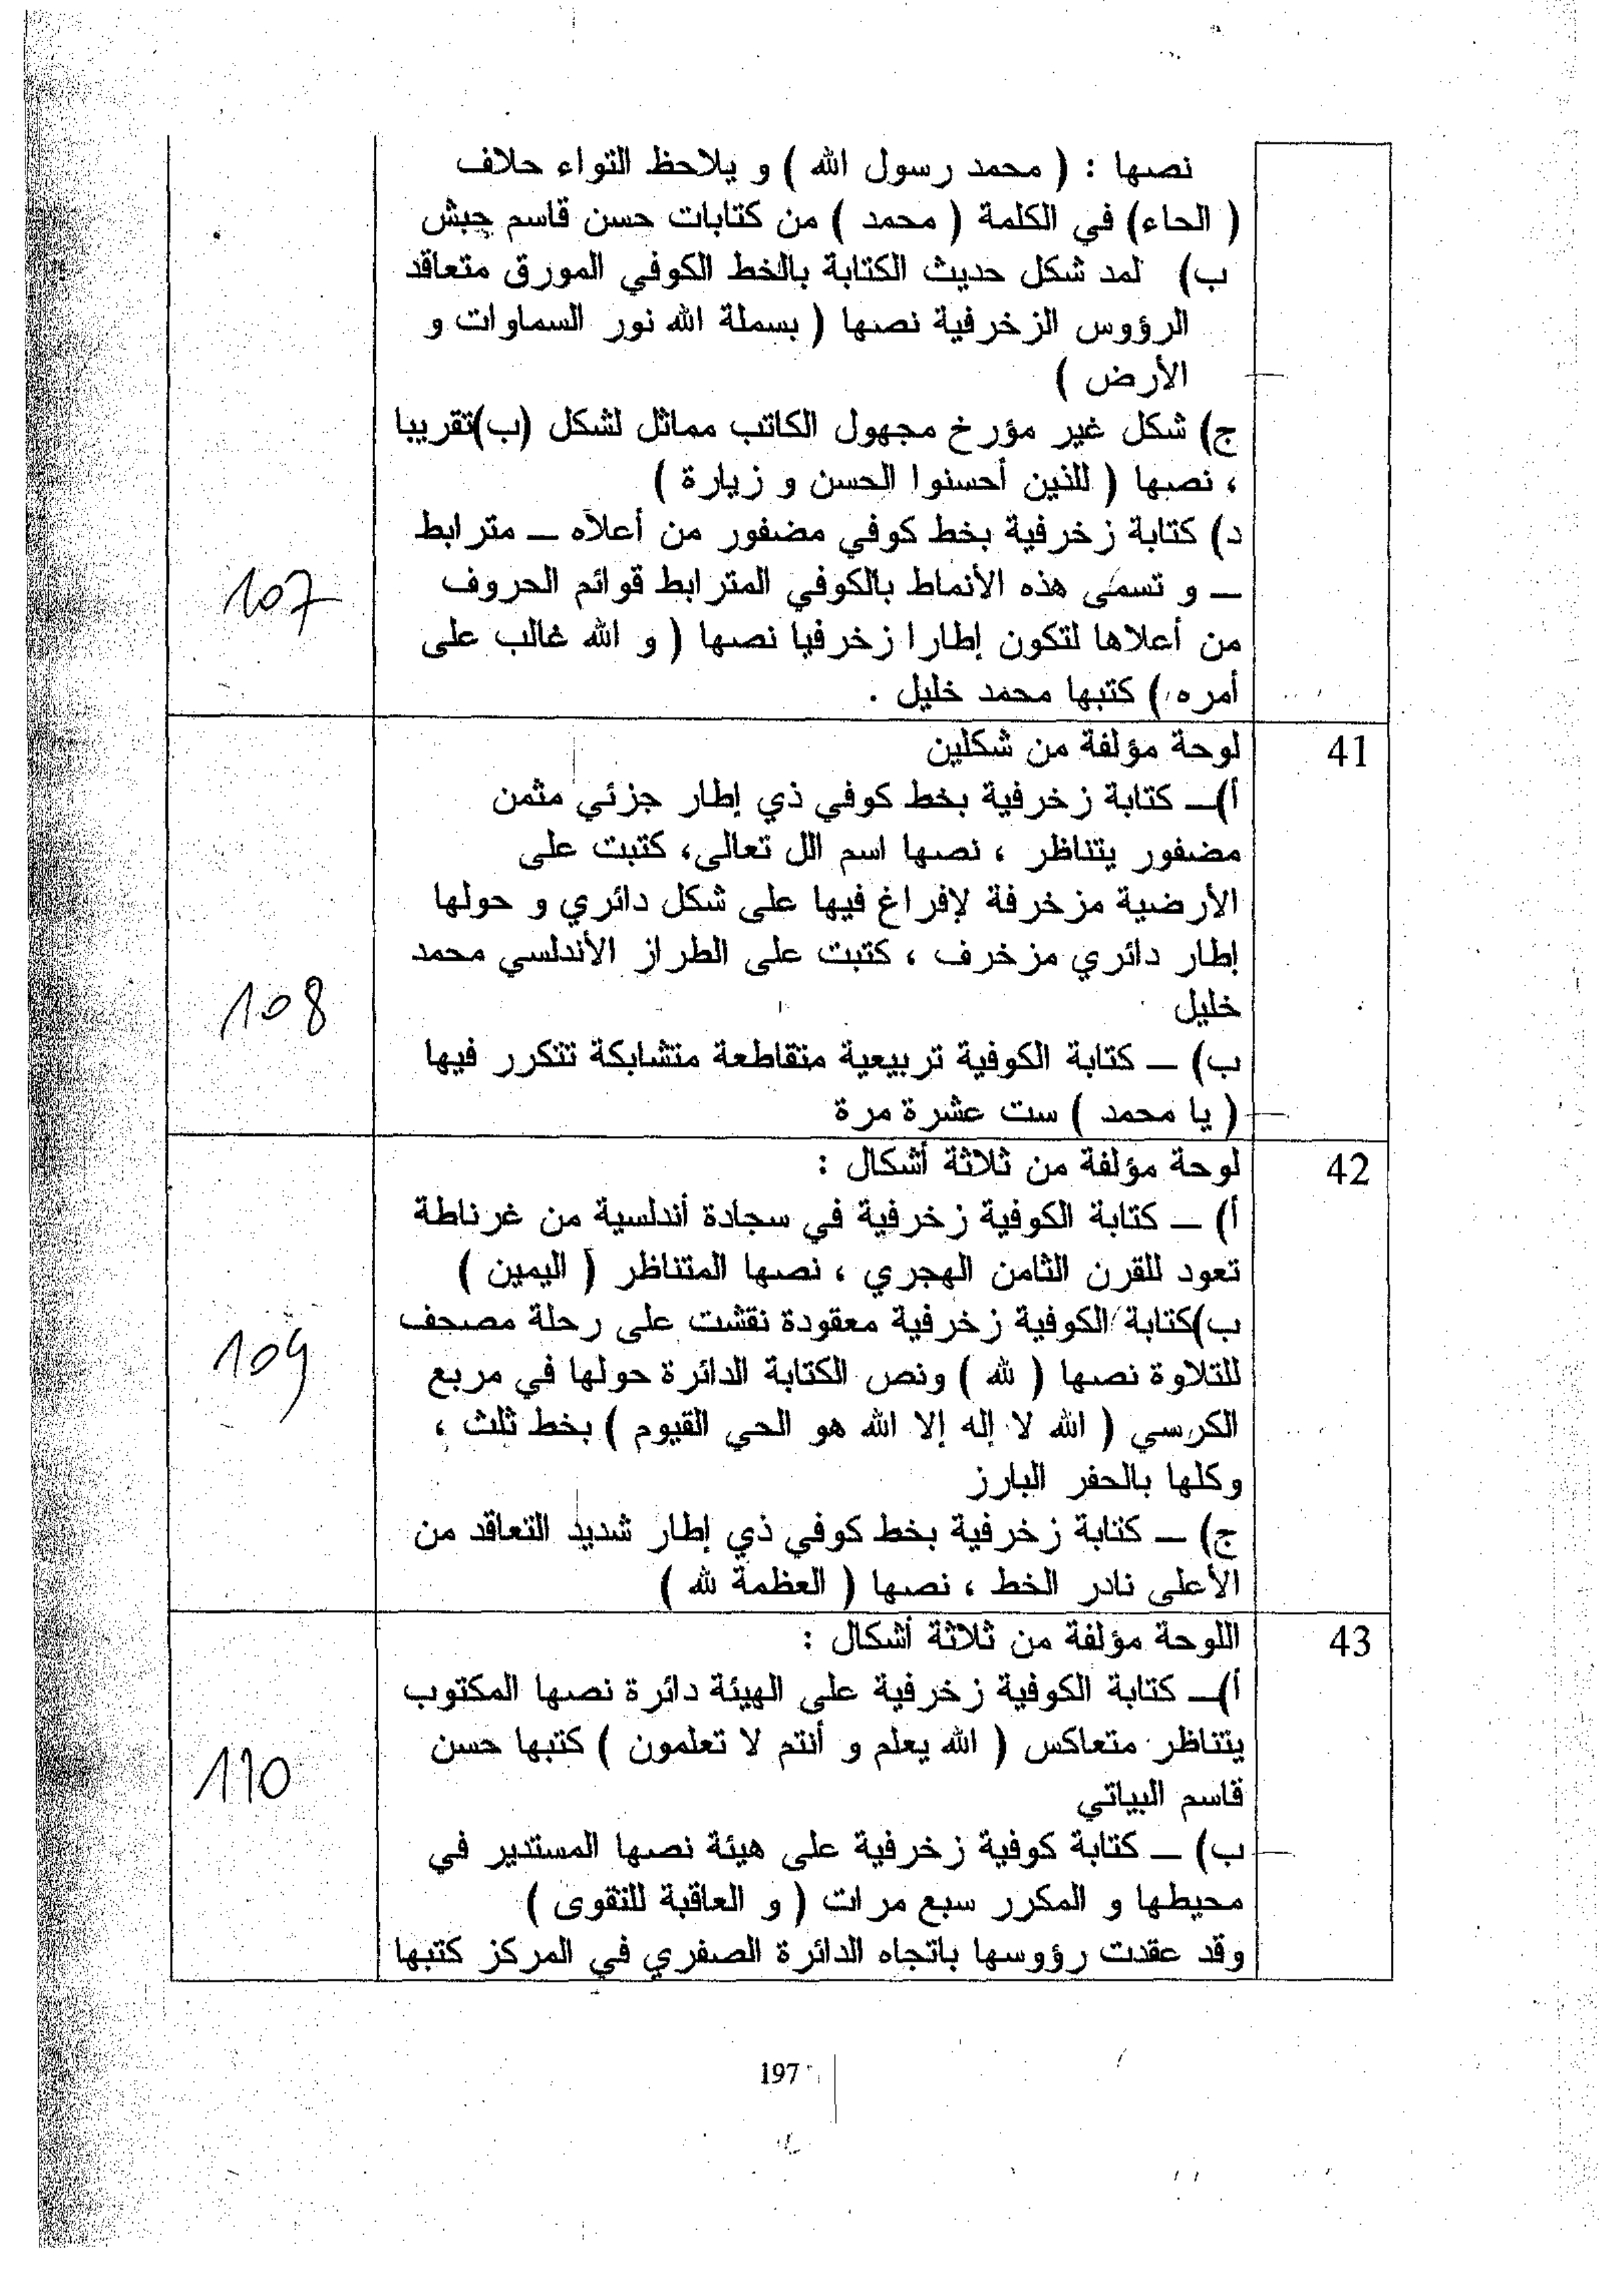 نصها : ( محمد رسول الله ) و يلاحظ التواء حلاف
( الحاء) في الكلمة ( محمد ) من كتابات حسن قاسم حبش
ب) لمد شكل حديث الكتابة بالخط الكوفي المورق متعاقد
الرؤوس الزخرفية نصها ( بسملة الله نور السماوات و
الأرض )
ج) شكل غير مؤرخ مجهول الكاتب مماثل لشكل (ب)تقريبا
، نصها ( للذين أحسنوا الحسن و زيارة )
د) كتابة زخرفية بخط كوفي مضفور من أعلاه – مترابط
107
– و تسمى هذه الأنماط بالكوفي المترابط قوائم الحروف
من أعلاها لتكون إطارا زخرفيا نصها ( و الله غالب على
أمره ) كتبها محمد خليل .
41
لوحة مؤلفة من شكلين
أ)– كتابة زخرفية بخط كوفي ذي إطار جزئي مثمن
مضفور يتناظر ، نصها اسم الل تعالى، كتبت على
الأرضية مزخرفة لإفراغ فيها على شكل دائري و حولها
إطار دائري مزخرف ، كتبت على الطراز الأندلسي محمد
خليل
108
ب) – كتابة الكوفية تربيعية متقاطعة متشابكة تتكرر فيها
( يا محمد ) ست عشرة مرة
42
لوحة مؤلفة من ثلاثة أشكال :
أ) – كتابة الكوفية زخرفية في سجادة أندلسية من غرناطة
تعود للقرن الثامن الهجري ، نصها المتناظر ( اليمين )
ب)كتابة الكوفية زخرفية معقودة نقشت على رحلة مصحف
109
للتلاوة نصها ( لله ) ونص الكتابة الدائرة حولها في مربع
الكرسي ( الله لا إله إلا الله هو الحي القيوم ) بخط ثلث ،
وكلها بالحفر البارز
ج) – كتابة زخرفية بخط كوفي ذي إطار شديد التعاقد من
الأعلى نادر الخط ، نصها ( العظمة لله )
43
اللوحة مؤلفة من ثلاثة أشكال :
أ)– كتابة الكوفية زخرفية على الهيئة دائرة نصها المكتوب
يتناظر متعاكس ( الله يعلم و أنتم لا تعلمون ) كتبها حسن
110
قاسم البياتي
ب) – كتابة كوفية زخرفية على هيئة نصها المستدير في
محيطها و المكرر سبع مرات ( و العاقبة للتقوى )
وقد عقدت رؤوسها باتجاه الدائرة الصفري في المركز كتبها
197